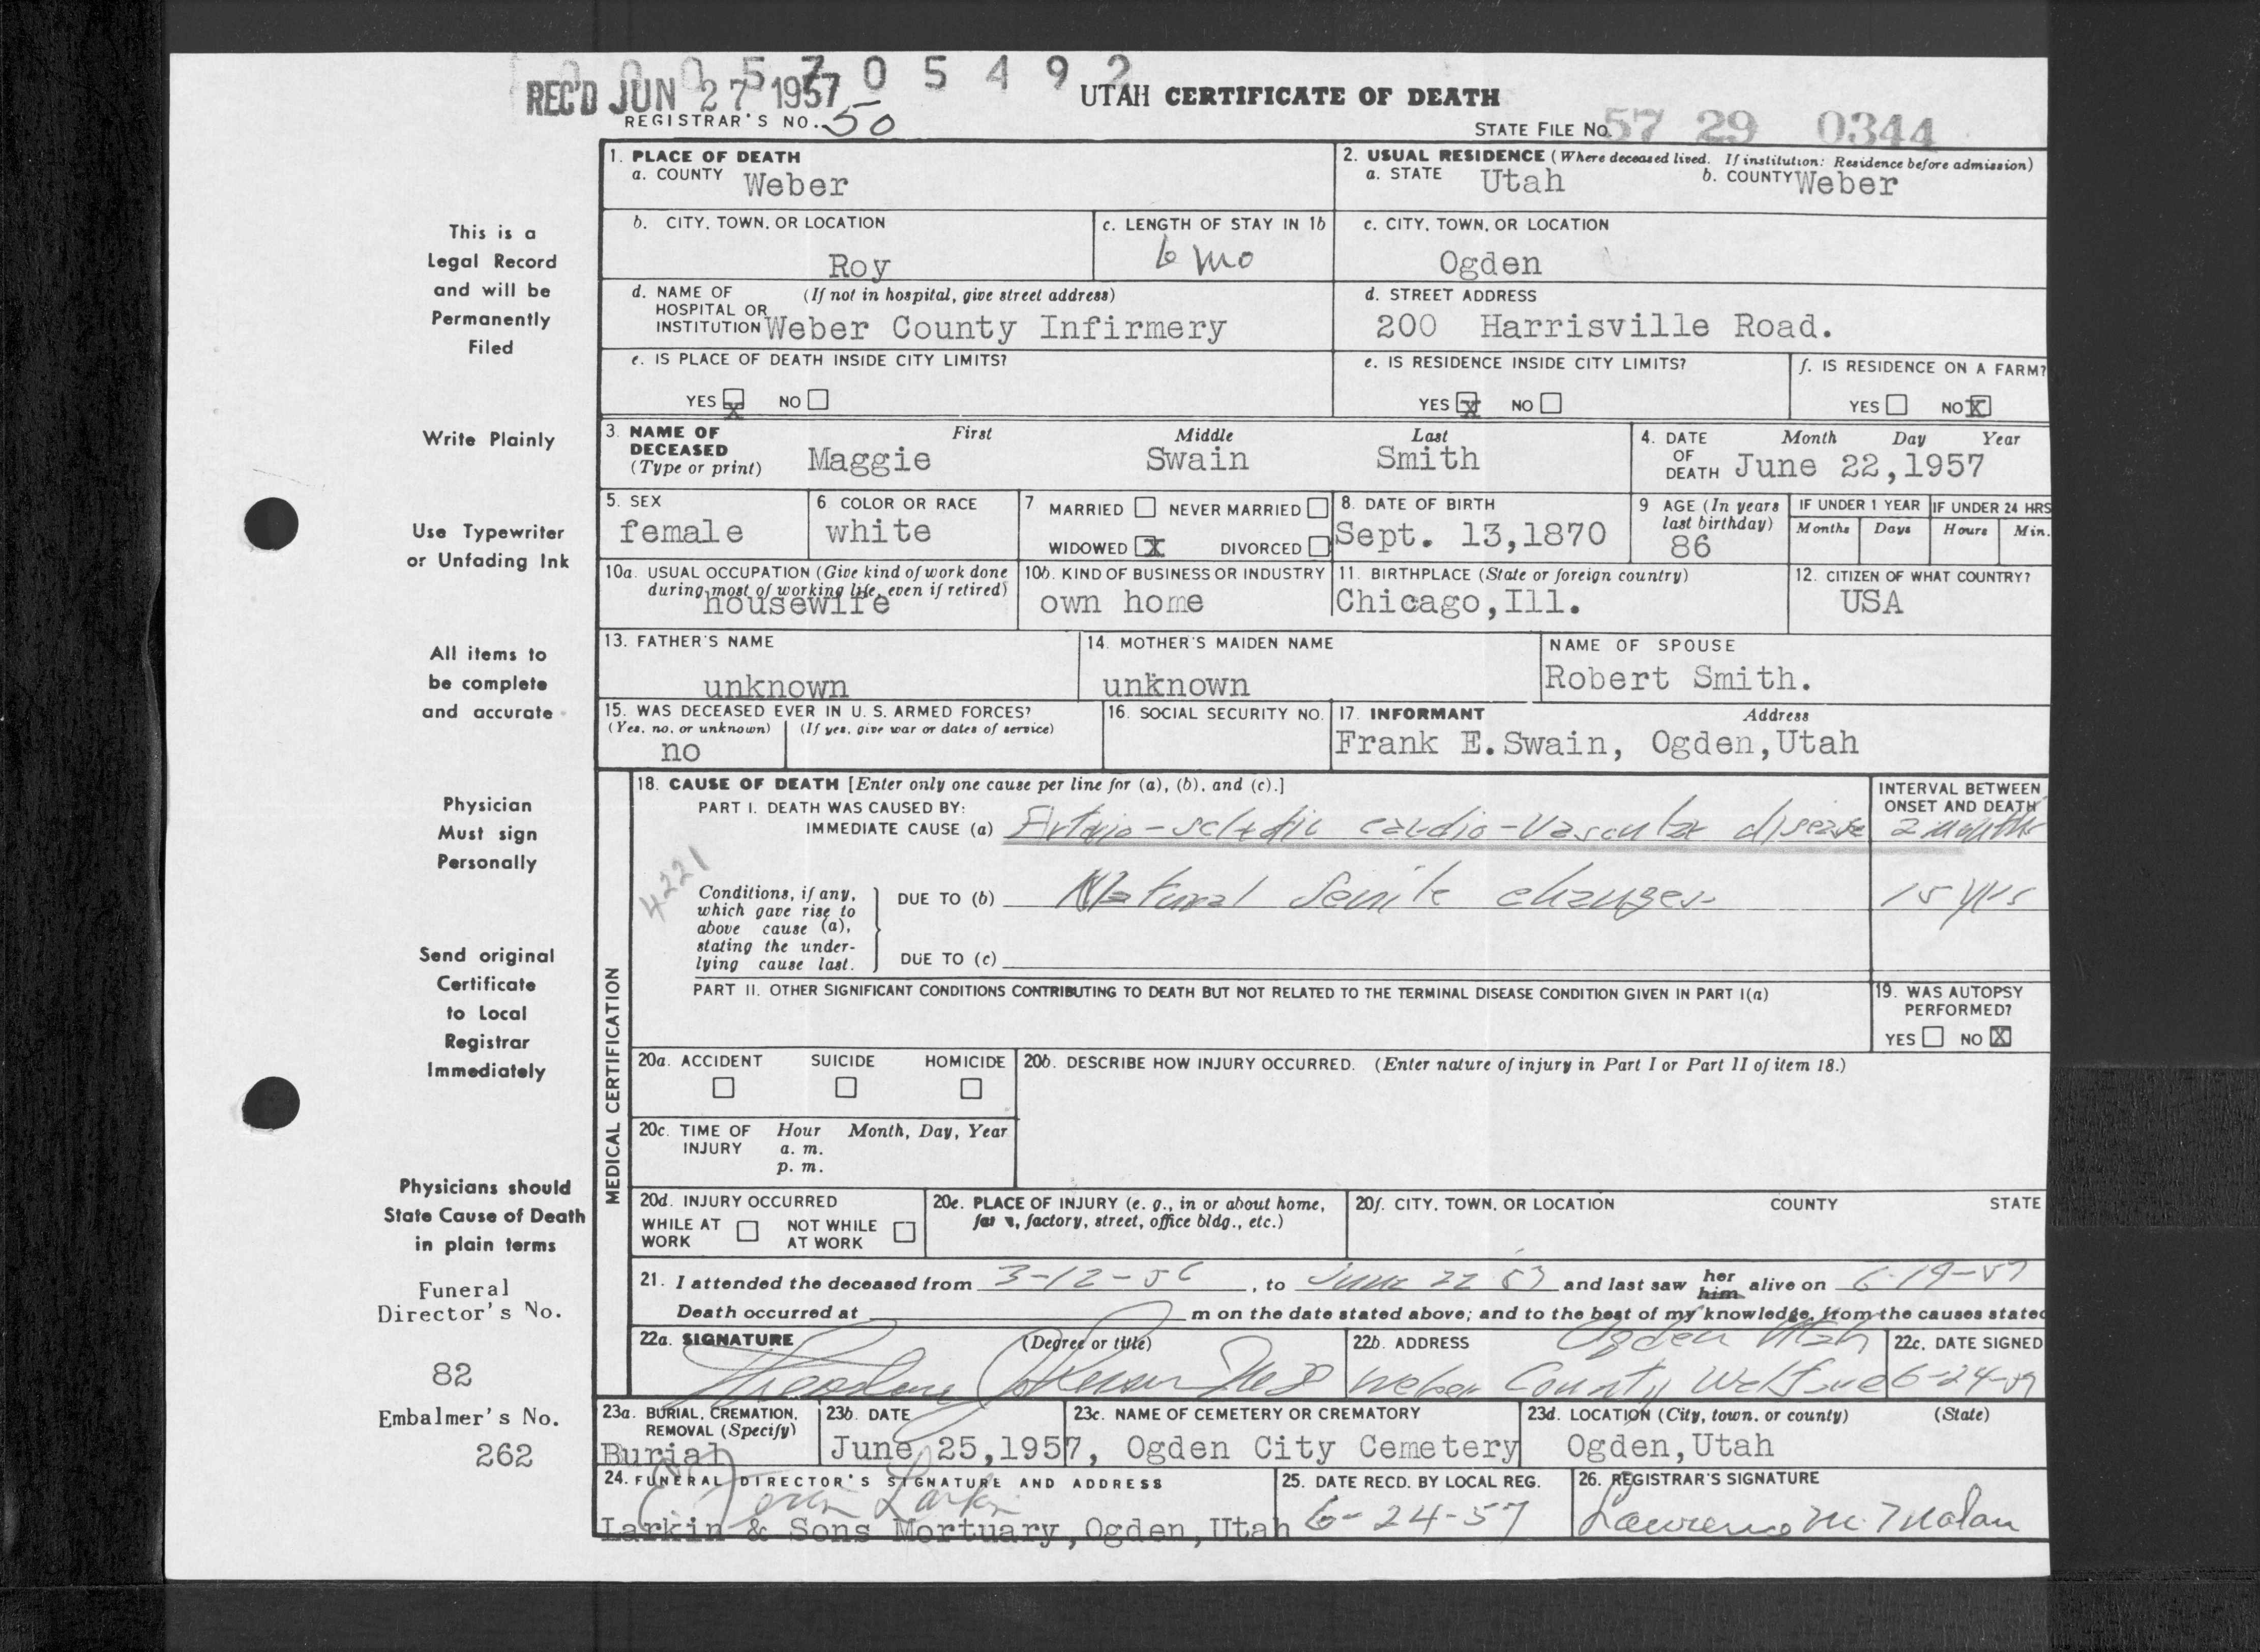 0 0 0 5 7 0 5 4 9 2
REC'D JUN 27 1957
UTAH CERTIFICATE OF DEATH
REGISTRAR'S NO. 50
STATE FILE NO. 57 29 0344
1. PLACE OF DEATH
a. COUNTY Weber
2. USUAL RESIDENCE (Where deceased lived. If institution: Residence before admission)
a. STATE Utah b. COUNTY Weber
b. CITY, TOWN, OR LOCATION
Roy
c. LENGTH OF STAY IN 1b
6 mo
c. CITY, TOWN, OR LOCATION
Ogden
d. NAME OF HOSPITAL OR INSTITUTION (If not in hospital, give street address)
Weber County Infirmery
d. STREET ADDRESS
200 Harrisville Road.
e. IS PLACE OF DEATH INSIDE CITY LIMITS?
YES X NO
e. IS RESIDENCE INSIDE CITY LIMITS?
YES X NO
f. IS RESIDENCE ON A FARM?
YES NO X
3. NAME OF DECEASED (Type or print)
First Middle Last
Maggie Swain Smith
4. DATE OF DEATH Month Day Year
June 22,1957
5. SEX
female
6. COLOR OR RACE
white
7 MARRIED NEVER MARRIED
WIDOWED X DIVORCED
8. DATE OF BIRTH
Sept. 13,1870
9 AGE (In years last birthday)
86
IF UNDER 1 YEAR
Months Days
IF UNDER 24 HRS
Hours Min.
10a. USUAL OCCUPATION (Give kind of work done during most of working life, even if retired)
housewife
10b. KIND OF BUSINESS OR INDUSTRY
own home
11. BIRTHPLACE (State or foreign country)
Chicago,Ill.
12. CITIZEN OF WHAT COUNTRY?
USA
13. FATHER'S NAME
unknown
14. MOTHER'S MAIDEN NAME
unknown
NAME OF SPOUSE
Robert Smith.
15. WAS DECEASED EVER IN U. S. ARMED FORCES?
(Yes, no, or unknown) (If yes, give war or dates of service)
no
16. SOCIAL SECURITY NO.
17. INFORMANT Address
Frank E.Swain, Ogden,Utah
MEDICAL CERTIFICATION
18. CAUSE OF DEATH [Enter only one cause per line for (a), (b), and (c).]
PART I. DEATH WAS CAUSED BY:
IMMEDIATE CAUSE (a) cardio-vascular disease
INTERVAL BETWEEN ONSET AND DEATH
2 months
4221
Conditions, if any, which gave rise to above cause (a), stating the underlying cause last.
DUE TO (b) Natural Senile changes 15 yrs
DUE TO (c)
PART II. OTHER SIGNIFICANT CONDITIONS CONTRIBUTING TO DEATH BUT NOT RELATED TO THE TERMINAL DISEASE CONDITION GIVEN IN PART I(a)
19. WAS AUTOPSY PERFORMED?
YES NO X
20a. ACCIDENT SUICIDE HOMICIDE
20b. DESCRIBE HOW INJURY OCCURRED. (Enter nature of injury in Part I or Part II of item 18.)
20c. TIME OF INJURY Hour Month, Day, Year
a. m.
p. m.
20d. INJURY OCCURRED
WHILE AT WORK NOT WHILE AT WORK
20e. PLACE OF INJURY (e. g., in or about home, factory, street, office bldg., etc.)
20f. CITY, TOWN, OR LOCATION COUNTY STATE
21. I attended the deceased from 3-12-56, to June 22 57 and last saw her him alive on 6-19-57
Death occurred at m on the date stated above; and to the best of my knowledge, from the causes stated
22a. SIGNATURE (Degree or title)
Theodore
22b. ADDRESS
Ogden Utah
Weber County Welfare
22c. DATE SIGNED
6-24-57
23a. BURIAL, CREMATION, REMOVAL (Specify)
Burial
23b. DATE
June 25,1957,
23c. NAME OF CEMETERY OR CREMATORY
Ogden City Cemetery
23d. LOCATION (City, town, or county) (State)
Ogden,Utah
24. FUNERAL DIRECTOR'S SIGNATURE AND ADDRESS
Larkin
Larkin & Sons Mortuary,Ogden,Utah
25. DATE RECD. BY LOCAL REG.
6-24-57
26. REGISTRAR'S SIGNATURE
Lawrence M. Malan
This is a
Legal Record
and will be
Permanently
Filed
Write Plainly
Use Typewriter
or Unfading Ink
All items to
be complete
and accurate
Physician
Must sign
Personally
Send original
Certificate
to Local
Registrar
Immediately
Physicians should
State Cause of Death
in plain terms
Funeral
Director's No.
82
Embalmer's No.
262